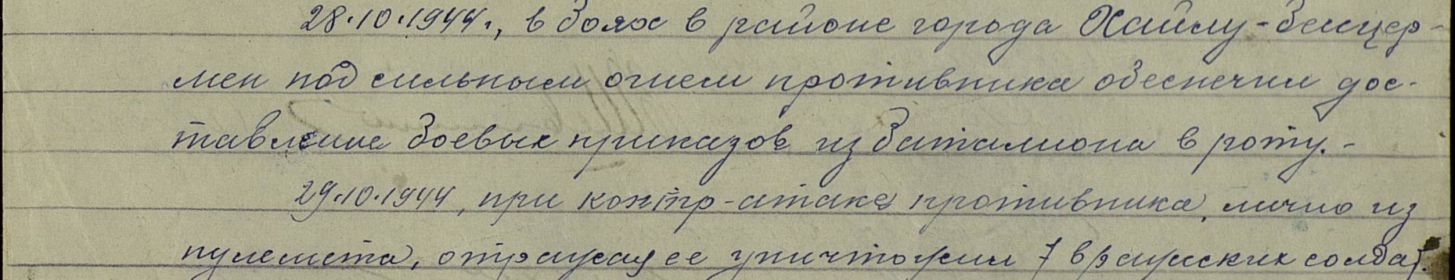 28.10.1944г., в боях в районе города Хайлу-бесцер-
мен под сильным огнем противника обеспечил дос-
тавление боевых приказов из баталиона в роту.-
29.10.1944, при контр-атаке противника, лично из
пулемета, отражая ее уничтожил 7 вражеских солдат.